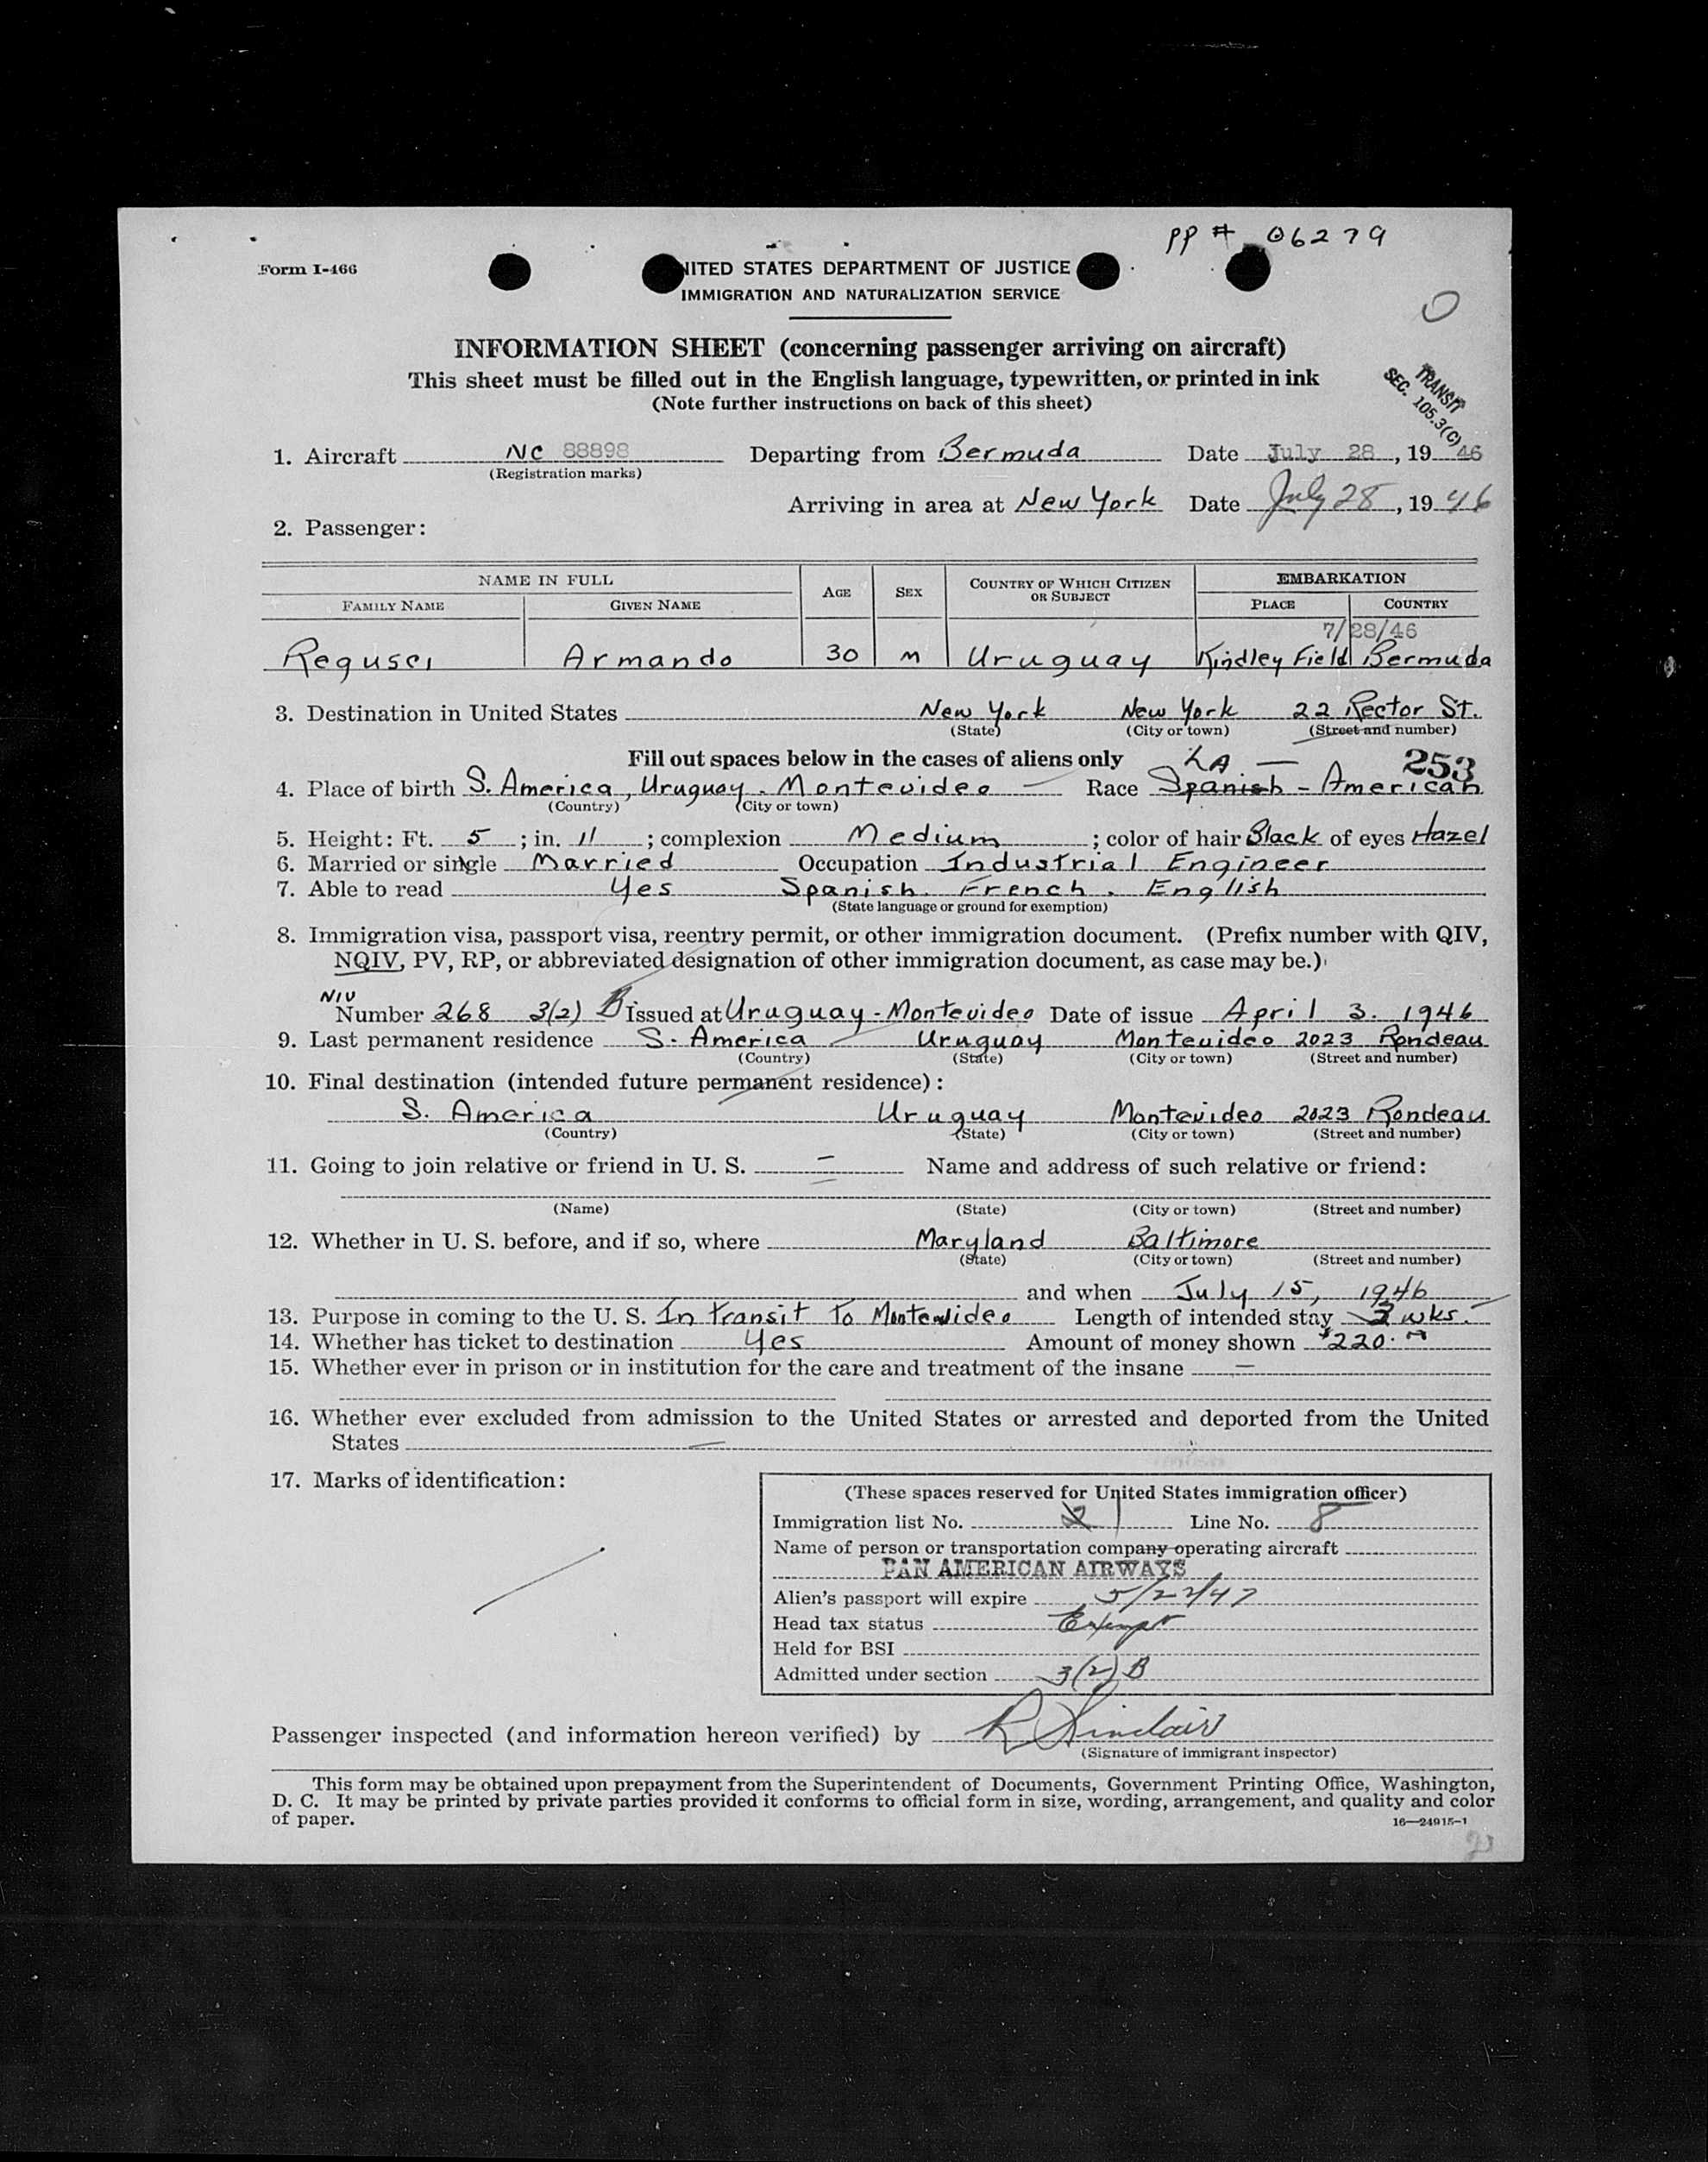 PP # 06279
Form I-466
UNITED STATES DEPARTMENT OF JUSTICE
IMMIGRATION AND NATURALIZATION SERVICE
INFORMATION SHEET (concerning passenger arriving on aircraft)
This sheet must be filled out in the English language, typewritten, or printed in ink
(Note further instructions on back of this sheet)
TRANSIT
SEC. 105.3(C)
1. Aircraft NC 88898 Departing from Bermuda Date July 28, 1946
(Registration marks)
Arriving in area at New York Date July 28, 1946
2. Passenger:
NAME IN FULL AGE SEX COUNTRY OF WHICH CITIZEN OR SUBJECT EMBARKATION
FAMILY NAME GIVEN NAME PLACE COUNTRY
7/28/46
Regusci Armando 30 M Uruguay Kindley Field Bermuda
3. Destination in United States New York New York 22 Rector St.
(State) (City or town) (Street and number)
Fill out spaces below in the cases of aliens only LA — 253
4. Place of birth S. America, Uruguay. Montevideo — Race Spanish - American
(Country) (City or town)
5. Height: Ft. 5; in. 11; complexion Medium; color of hair Black of eyes Hazel
6. Married or single Married Occupation Industrial Engineer
7. Able to read Yes Spanish. French. English
(State language or ground for exemption)
8. Immigration visa, passport visa, reentry permit, or other immigration document. (Prefix number with QIV,
NQIV, PV, RP, or abbreviated designation of other immigration document, as case may be.)
NIV
Number 268 3(2) B Issued at Uruguay - Montevideo Date of issue April 3. 1946
9. Last permanent residence S. America Uruguay Montevideo 2023 Rondeau
(Country) (State) (City or town) (Street and number)
10. Final destination (intended future permanent residence):
S. America Uruguay Montevideo 2023 Rondeau
(Country) (State) (City or town) (Street and number)
11. Going to join relative or friend in U. S. — Name and address of such relative or friend:
(Name) (State) (City or town) (Street and number)
12. Whether in U. S. before, and if so, where Maryland Baltimore
(State) (City or town) (Street and number)
and when July 15, 1946
13. Purpose in coming to the U. S. In transit to Montevideo Length of intended stay wks.
14. Whether has ticket to destination Yes Amount of money shown $220.
15. Whether ever in prison or in institution for the care and treatment of the insane —
16. Whether ever excluded from admission to the United States or arrested and deported from the United
States —
17. Marks of identification:
(These spaces reserved for United States immigration officer)
Immigration list No. 1 Line No. 8
Name of person or transportation company operating aircraft
PAN AMERICAN AIRWAYS
Alien's passport will expire 5/22/47
Head tax status Exempt
Held for BSI
Admitted under section 3(2) B
Passenger inspected (and information hereon verified) by R Sinclair
(Signature of immigrant inspector)
This form may be obtained upon prepayment from the Superintendent of Documents, Government Printing Office, Washington,
D. C. It may be printed by private parties provided it conforms to official form in size, wording, arrangement, and quality and color
of paper.
16—24915-1